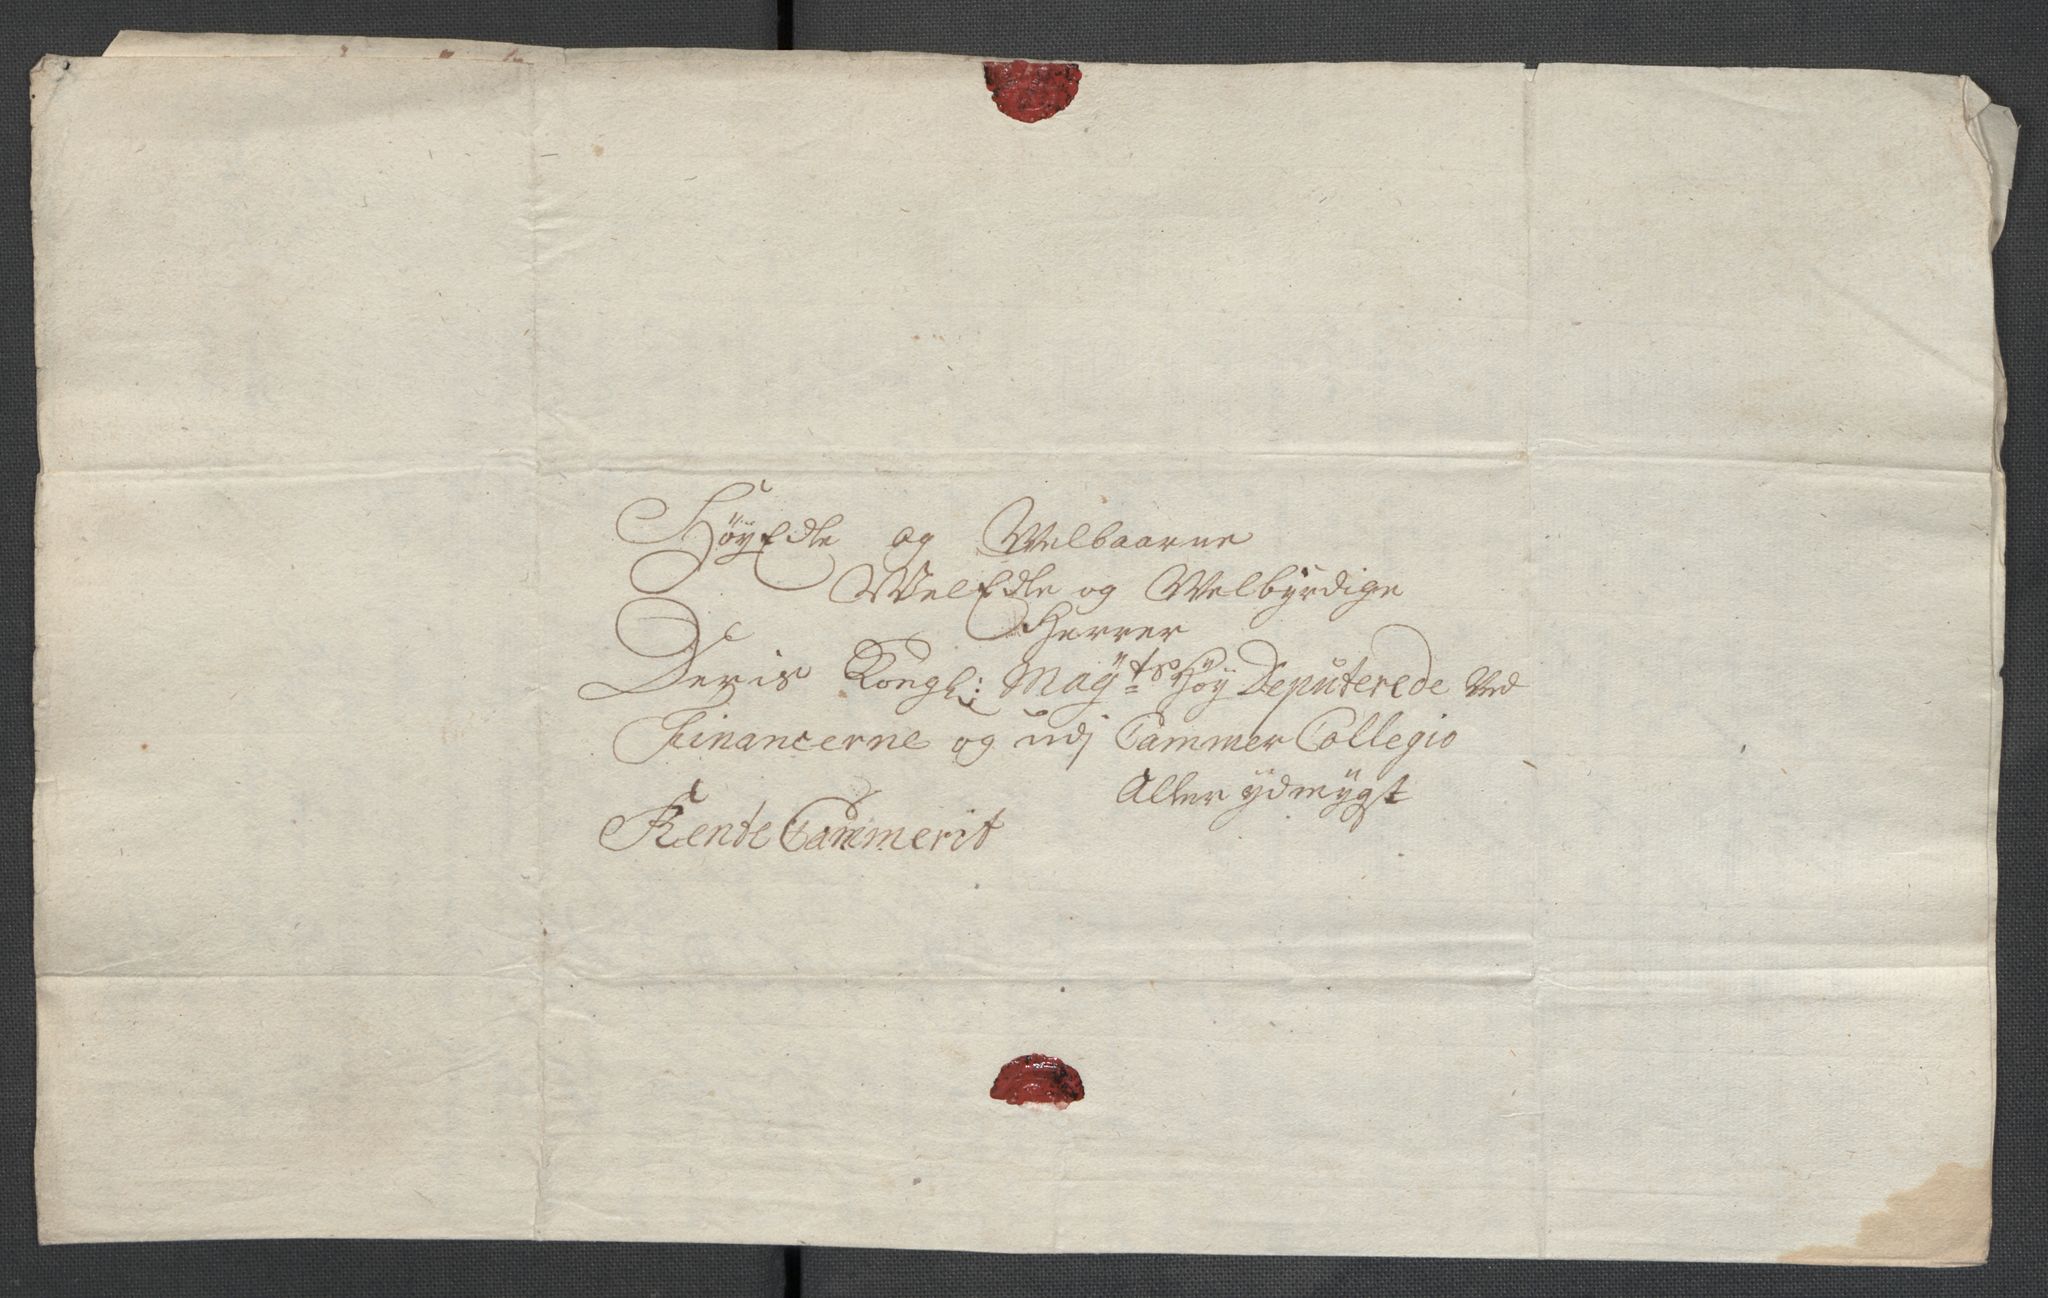 HöyEdle og Welbaarne
WelEdle og Welbyrdige
Herrer
Deris Kongl: Mayts Höy Deputerede Ved
Financerne og udj Cammer Collegio
Aller ydmygst
Rente Cammerit